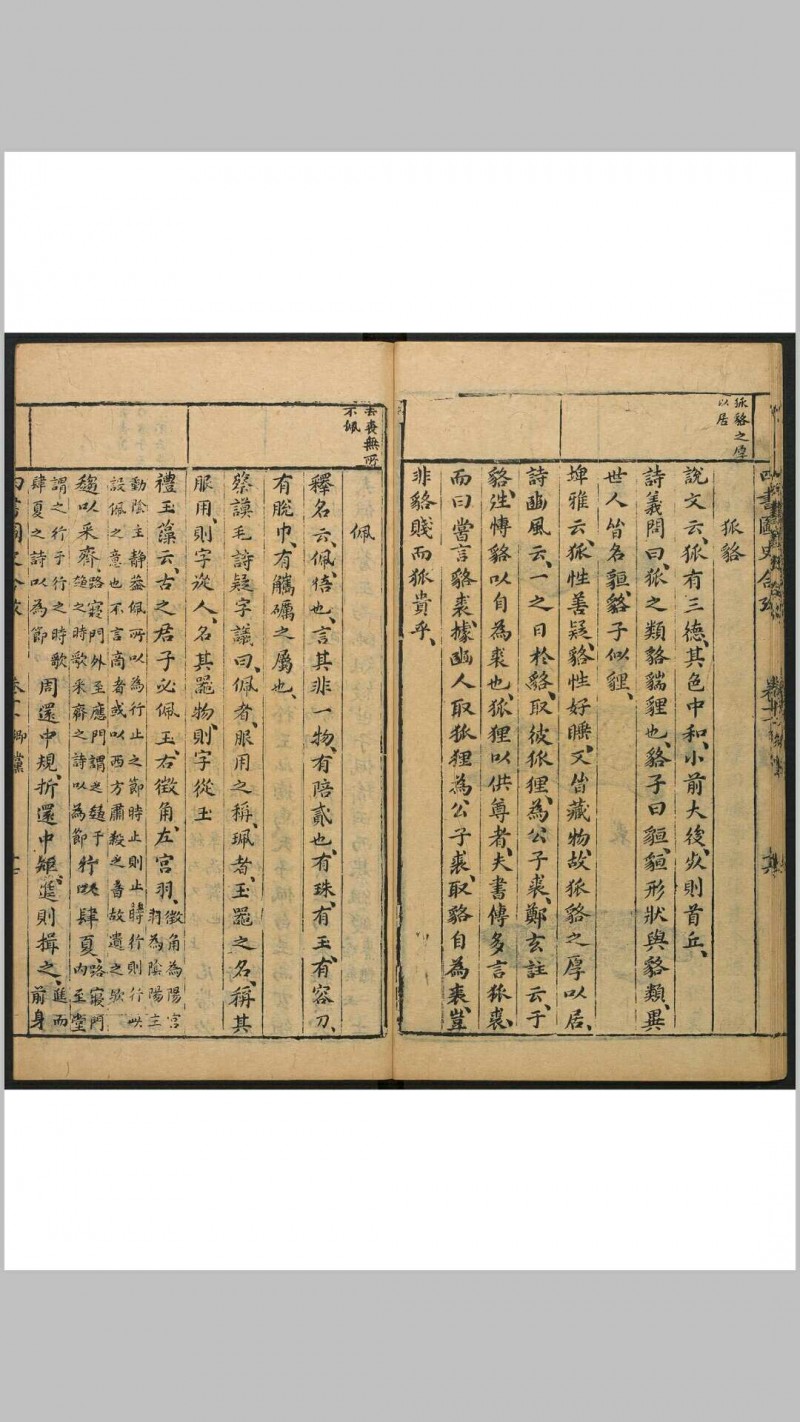 狐貉之厚
以居
狐貉
說文云、狐有三德、其色中和、小前大後、死則首丘、
詩義問曰、狐之類貉貒貍也、貉子曰貆、貆形狀與貉類、異
世人皆名貆、貉子似貍、
埤雅云、狐性善疑、貉性好睡、又皆藏物、故狐貉之厚以居、
詩豳風云、一之日於貉、取彼狐狸、為公子裘、鄭玄註云、于
貉、徃慱貉以自為裘也、狐狸以供尊者、夫書傳多言狐裘、
而曰嘗言貉裘、據豳人取狐狸為公子裘、取貉自為裘、豈
非貉賤而狐貴乎、
去喪無所
不佩
佩
釋名云、佩、悟也、言其非一物、有陪貳也、有珠、有玉、有容刀、
有帨巾、有觿礪之屬也、
蔡謨毛詩疑字議曰、佩者、服用之稱、珮者、玉噐之名、稱其
服用、則字從人、名其噐物、則字從玉
禮玉藻云、古之君子必佩玉、右徵角、左宮羽、徵角為陽宮
羽為陰陽主
動陰主靜葢佩所以為行止之節時止則止時行則行此
設佩之意也不言商者或以西方肅殺之音故遺之歟
趨以采齊、路寢門外至應門謂之趨于
趨之時歌采齊之詩以為節行以肆夏、路寢門
內至堂
謂之行于行之時歌
肆夏之詩以為節周還中規、折還中矩、進則揖之、進而
前身